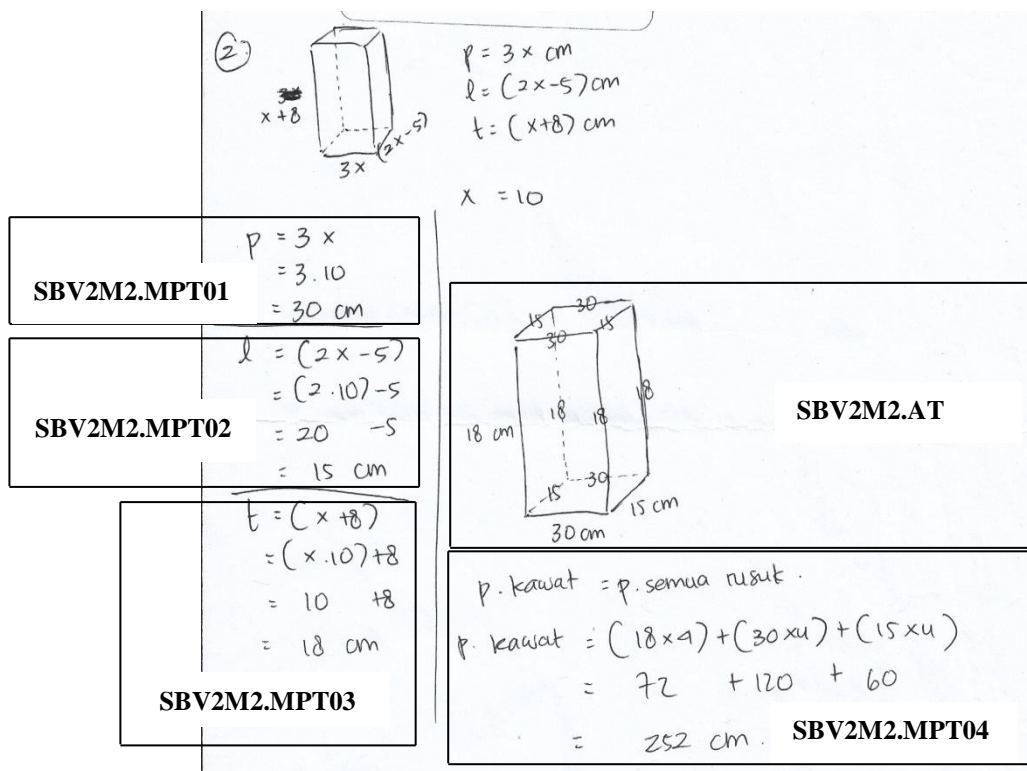 2.
x+8
3x
(2x-5)
p = 3x cm
l = (2x-5) cm
t = (x+8) cm
x = 10
p = 3x
= 3.10
= 30 cm
SBV2M2.MPT01
l = (2x-5)
= (2.10)-5
= 20 -5
= 15 cm
SBV2M2.MPT02
t = (x+8)
= (x.10)+8
= 10 +8
= 18 cm
SBV2M2.MPT03
30
15 15
30
18 18 18
18 cm
30
15
15 cm
30 cm
SBV2M2.AT
p. kawat = p. semua rusuk.
p. kawat = (18x4)+(30x4)+(15x4)
= 72 + 120 + 60
= 252 cm.
SBV2M2.MPT04